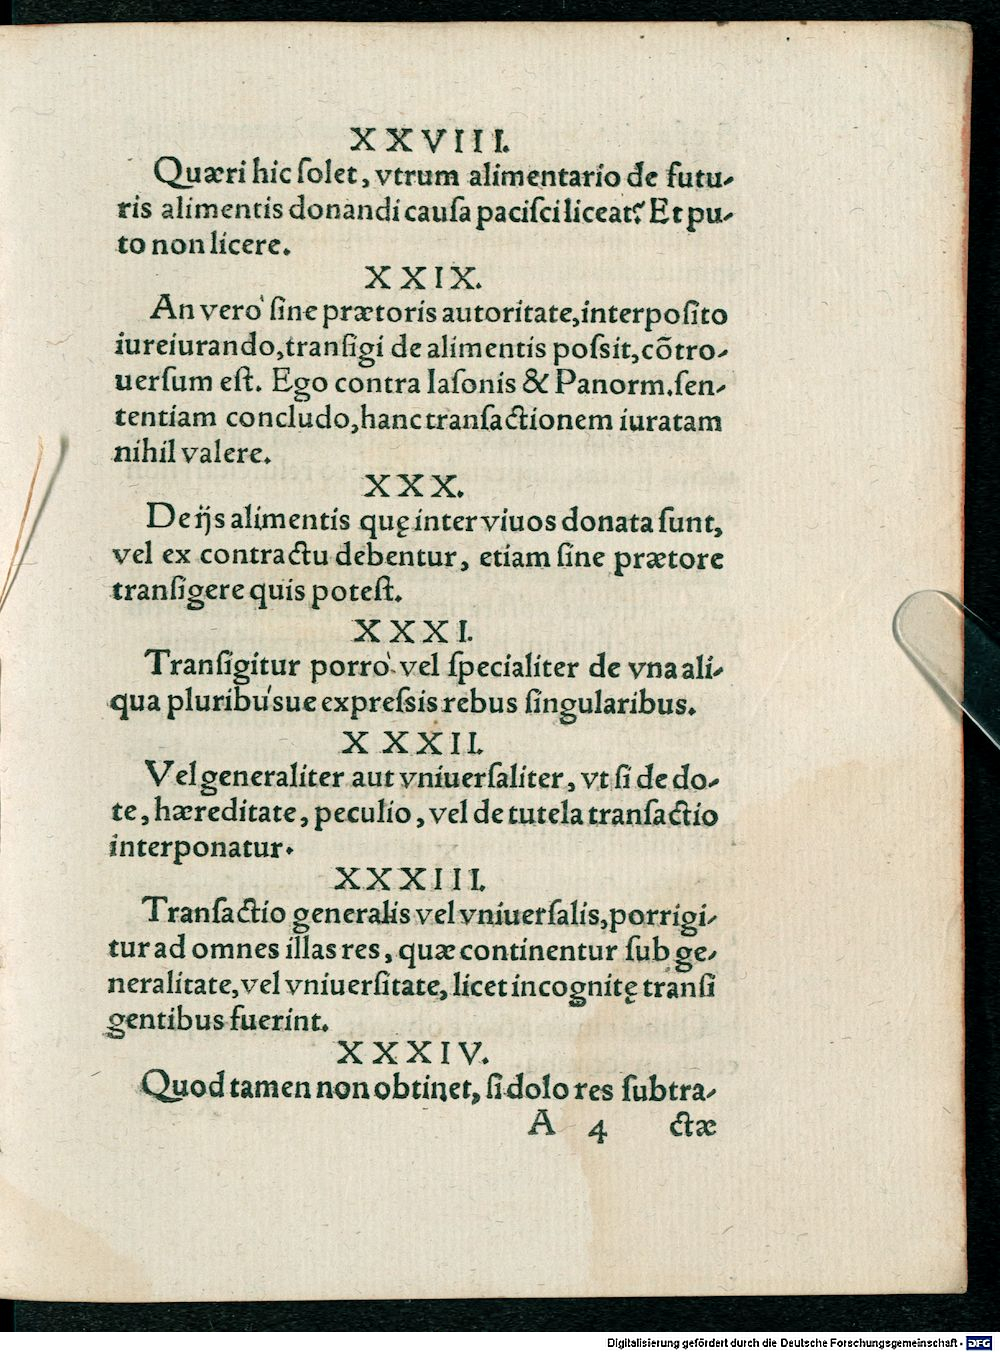 XXVIII.
Quæri hic ſolet, vtrum alimentario de futu-
ris alimentis donandi cauſa paciſci liceat? Et pu-
to non licere.
XXIX.
An verò ſine prætoris autoritate, interpoſito
iureiurando, tranſigi de alimentis poſsit, cõtro-
uerſum eſt. Ego contra Iaſonis & Panorm. ſen-
tentiam concludo, hanc tranſactionem iuratam
nihil valere.
XXX.
De ijs alimentis quę inter viuos donata ſunt,
vel ex contractu debentur, etiam ſine prætore
tranſigere quis poteſt.
XXXI.
Tranſigitur porrò vel ſpecialiter de vna ali-
qua pluribúsue expreſsis rebus ſingularibus.
XXXII.
Vel generaliter aut vniuerſaliter, vt ſi de do-
te, hæreditate, peculio, vel de tutela tranſactio
interponatur.
XXXIII.
Tranſactio generalis vel vniuerſalis, porrigi-
tur ad omnes illas res, quæ continentur ſub ge-
neralitate, vel vniuerſitate, licet incognitę tranſi
gentibus fuerint.
XXXIV.
Quod tamen non obtinet, ſi dolo res ſubtra-
A 4 ctæ
Digitalisierung gefördert durch die Deutsche Forschungsgemeinschaft - DFG